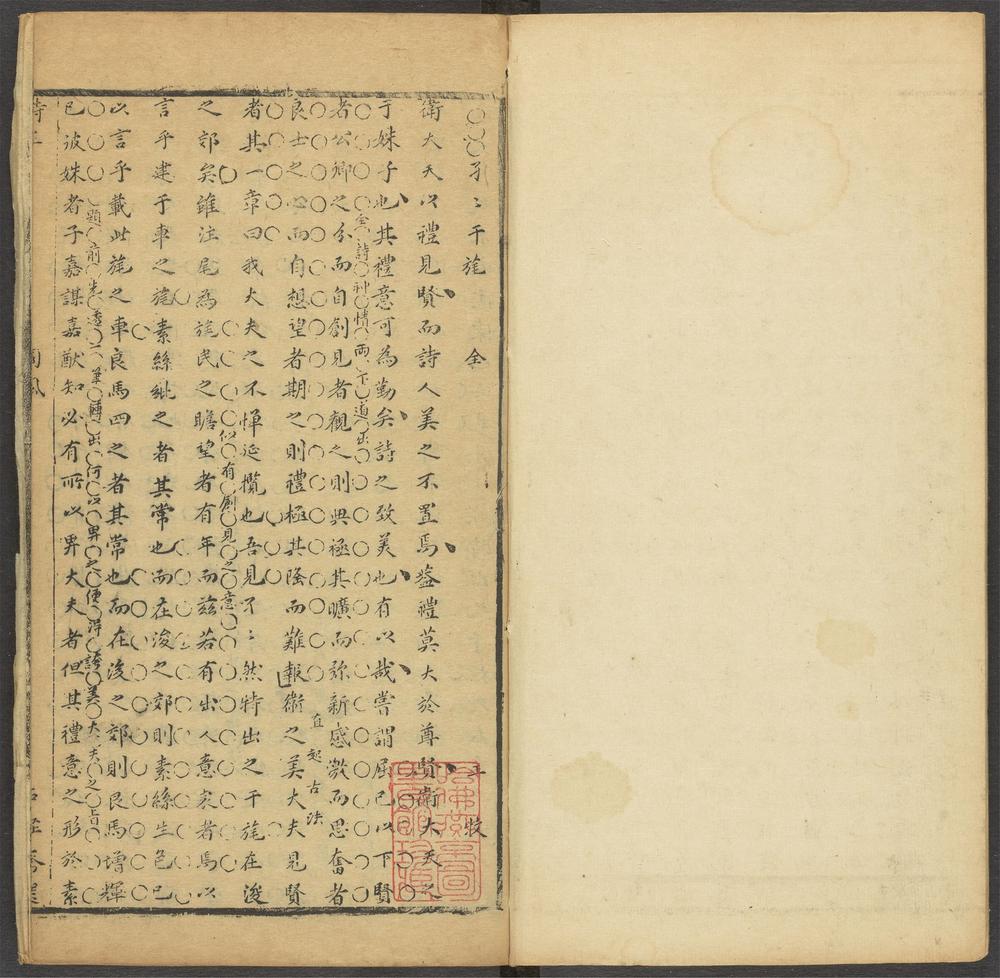 孑〻干旄 全 牧
衛大夫以禮見賢而詩人美之不置焉蓋禮莫大於尊賢衛大夫之
于姝子也其禮意可為勤矣詩之致美也有以哉嘗謂屈己以下賢
全詩神情兩下道出
者公卿之分而自創見者觀之則典極其曠而弥新感激而思奮者
良士之心而自想望者期之則禮極其隆而難報衛之美大夫見賢
直起古法
者其一章曰我大夫之不憚延攬也吾見孑〻然特出之干旄在浚
之郊矣雖注尾為旄民之瞻望者有年而茲若有出人意表者焉以
似有創見之意
言乎建于車之旄素絲紕之者其常也而在浚之郊則素絲生色已
以言乎載此旄之車良馬四之者其常也而在浚之郊則良馬增輝
已彼姝者子嘉謀嘉猷知必有所以畀大夫者但其禮意之形於素
題前先透一筆轉出何以畀之便得誇美大夫之旨